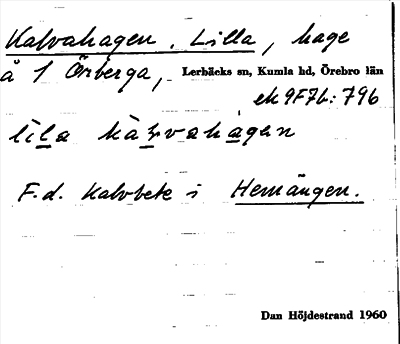 Kalvahagen, Lilla, hage
å 1 Örberga, Lerbäcks sn, Kumla hd, Örebro län
ek 9F7b:796
lila kàlvahagen
F.d. kalvbete i Hemängen.
Dan Höjdestrand 1960